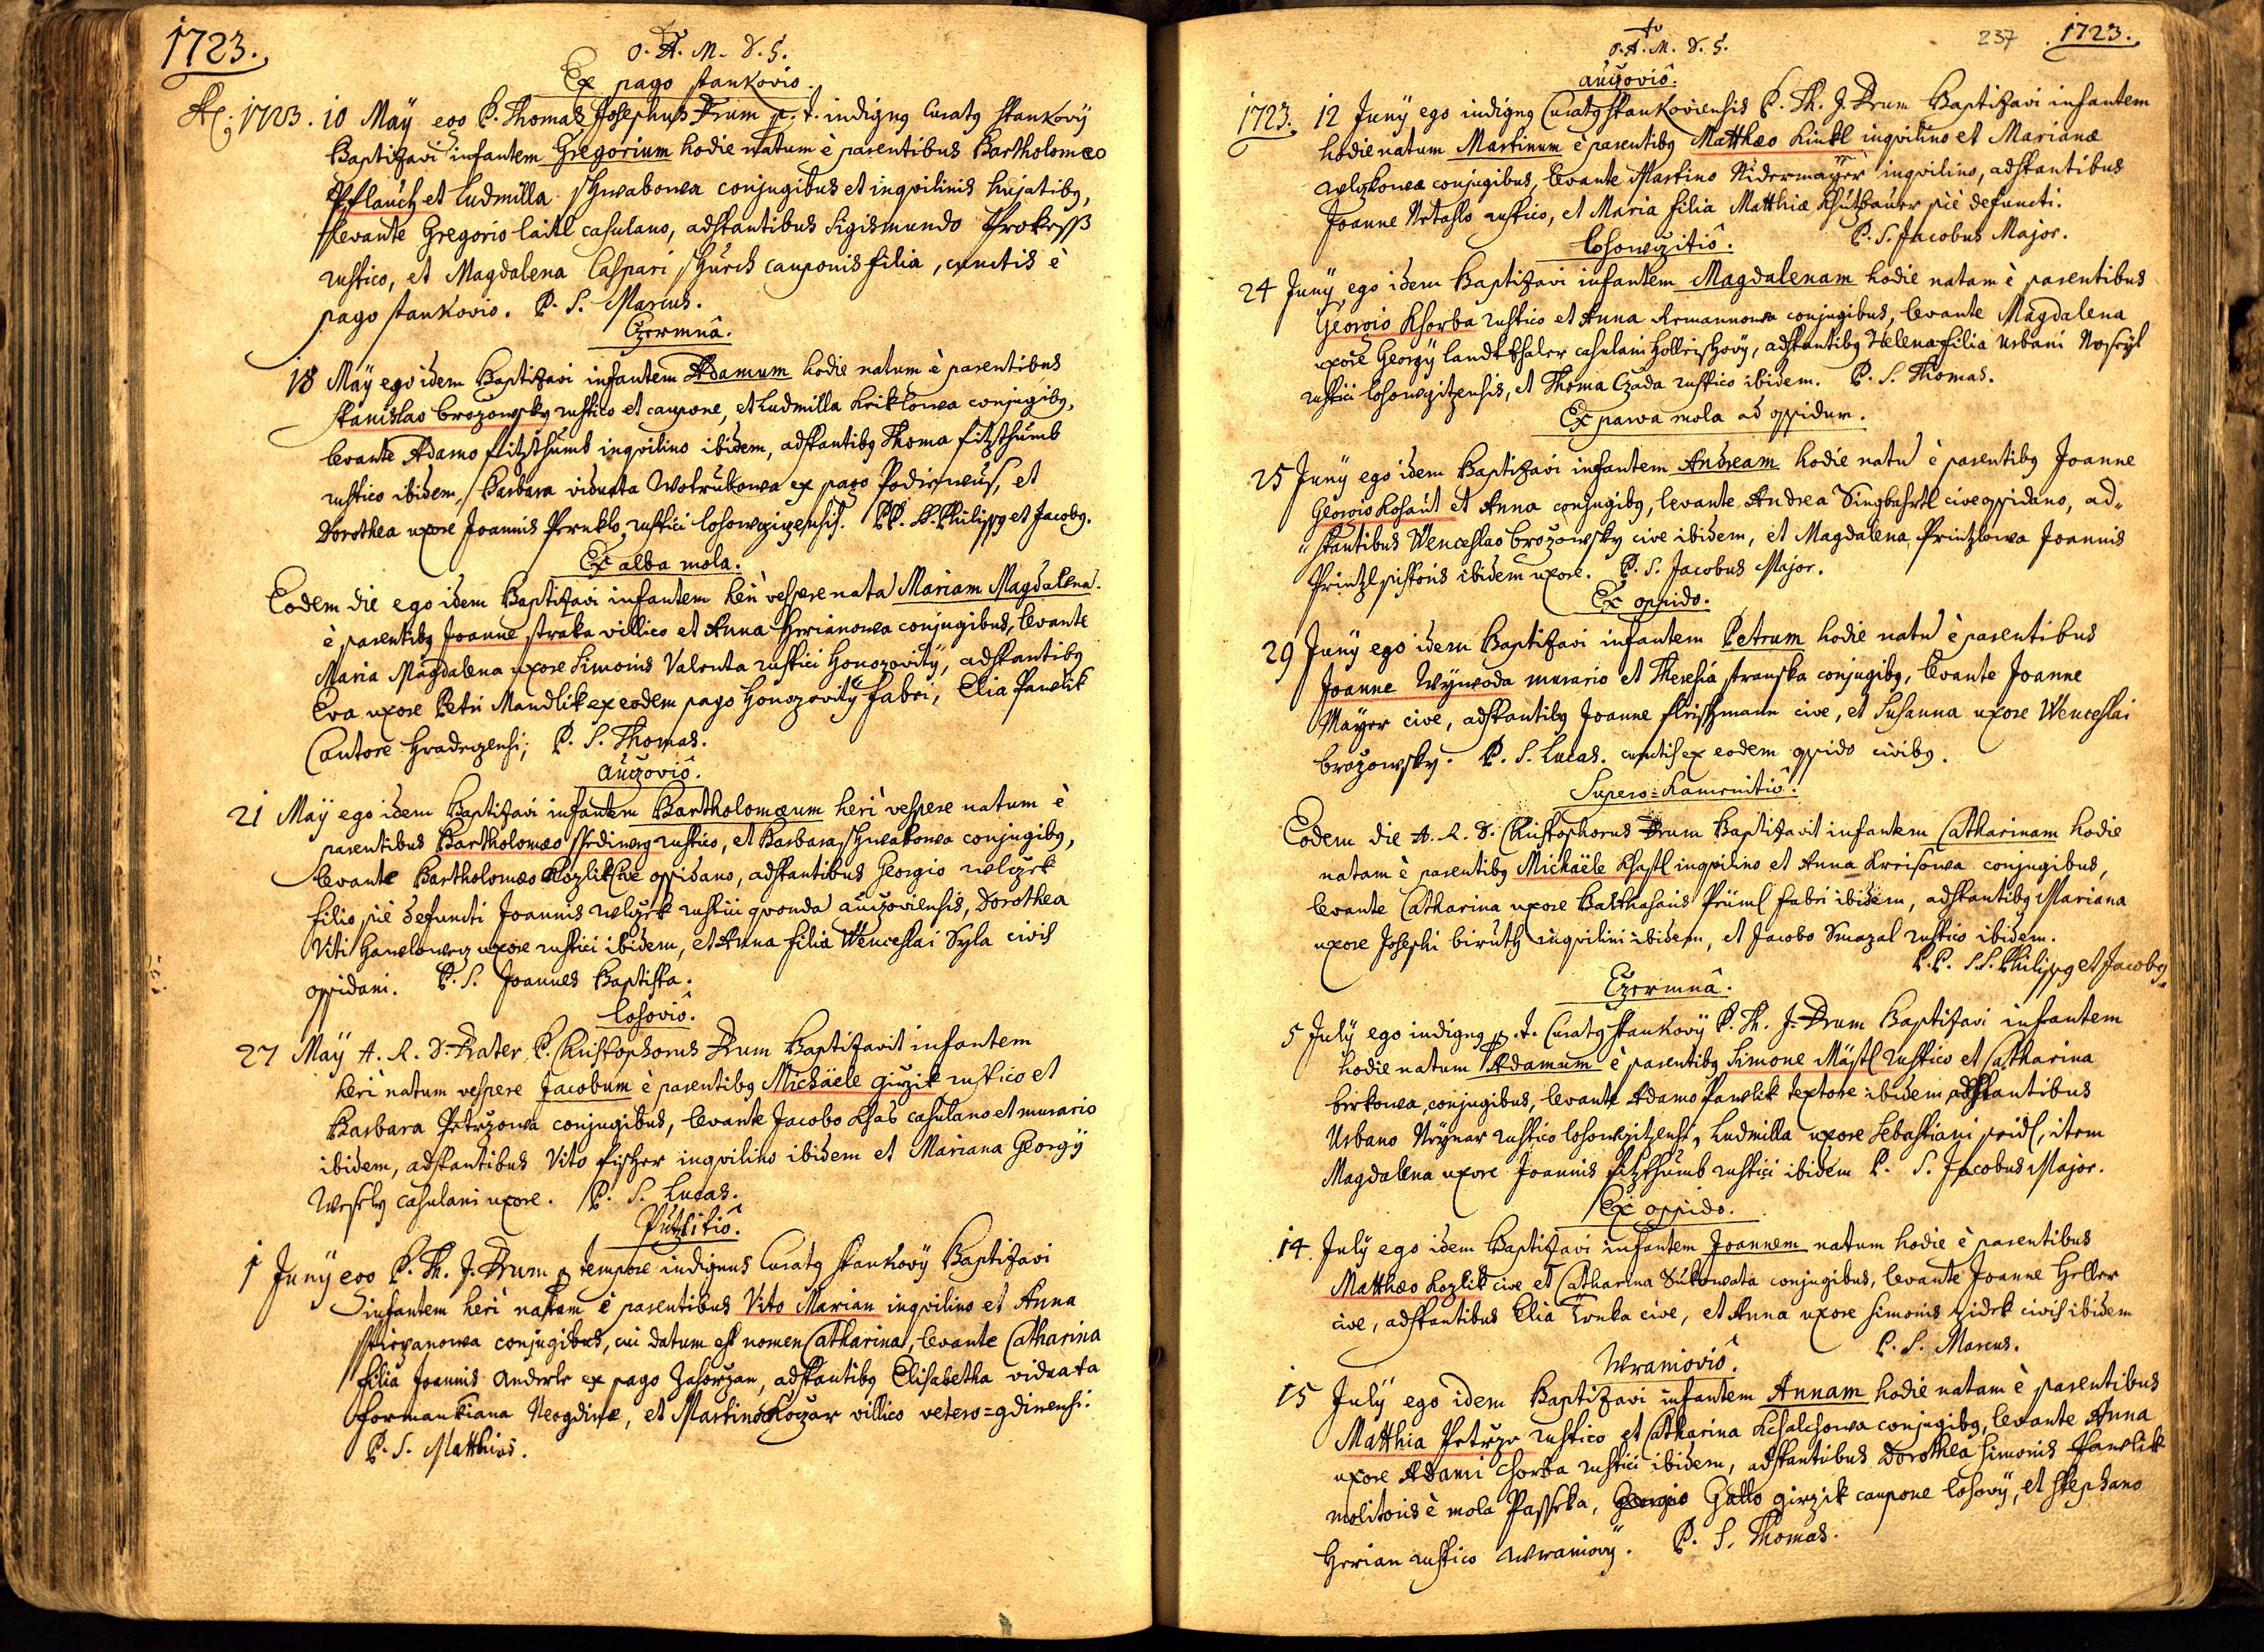 1723.
O. A. M. D. G.
Ex pago Stankovio.
A͂o 1723. 10 Maÿ ego P. Thomas Josephus Drum p. t. indignꝰ Curatꝰ Stankovÿ
Baptizavi infantem Gregorium hodie natum è parentibus Bartholomæo
Pflauch et Ludmilla Schwabowa conjugibus et inqvilinis hujatibꝰ,
levante Gregorio laitl casulano, adstantibus Sigismundo Prokess
rustico, et Magdalena Caspari Schürch cauponis filia, cunctis è
pago Stankovio. P. S. Marcus.
Czermnâ.
18 Maÿ ego idem Baptizavi infantem Adamum hodie natum è parentibus
Stanislao brozowsky rustico et caupone, et Ludmilla Kriklowa conjugibꝰ,
levante Adamo fitzthumb inqvilino ibidem, adstantibꝰ Thoma fitzthumb
rustico ibidem, Barbara viduata Wotrubowa ex pago Podiewus, et
Dorothea uxore Joannis Pernklo rustici losowczicensis. PP. SS. Philippꝰ et Jacobꝰ.
Ex alba mola.
Eodem die ego idem Baptizavi infantem heri vespere natã Mariam Magdalenã
è parentibꝰ Joanne Straka villico et Anna Herianowa conjugibus, levante
Maria Magdalena uxore Simonis Valenta rustici Honozovitÿ, adstantibꝰ
Eva uxore Petri Mandlik ex eodem pago Honozovitÿ fabri, Elia Pawlik
Cantore Hradezensi; P. S. Thomas.
Auczoviô.
21 Maÿ ego idem Baptizavi infantem Bartholomæum heri vespere natum è
parentibus Bartholomæo Schrdinerg rustico, et Barbara Schwabowa conjugibꝰ,
levante Bartholomæo Kozlik Cive oppidano, adstantibus Georgio wlczek
filio piè defuncti Joannis Wlczek rustici qvondã Auczoviensis, Dorothea
Viti Hawlowecz uxore rustici ibidem, et Anna filia Wenceslai Syla civis
oppidani. P. S. Joannes Baptista.
Losoviô.
27 Maÿ A. R. D. Frater P. Christophorus Drum Baptizavit infantem
heri natum vespere Jacobum è parentibꝰ Michäele girzik rustico et
Barbara Petrzowa conjugibus, levante Jacobo Khas casulano et murario
ibidem, adstantibus Vito fischer inqvilino ibidem et Mariana Georgÿ
Wesely casulani uxore. P. S. Lucas.
Putzlitiô.
1 Junÿ ego P. Th. J. Drum p. tempore indignus Curatꝰ Stankovÿ Baptizavi
infantem heri natam è parentibus Vito Marian inqvilino et Anna
Stiepanowa conjugibus, cui datum est nomen Catharina, levante Catharina
filia Joannis Anderle ex pago Zahorzan, adstantibꝰ Elisabetha viduata
formankiana Neogdinæ, et Martino Koczar villico vetero=gdinensi.
P. S. Matthias.
237 1723.
O. A. M. D. G.
Auczoviô.
1723. 12 Junÿ ego indignꝰ Curatꝰ Stankoviensis P. Th. J. Drum Baptizavi infantem
hodie natum Martinum è parentibꝰ Matthæo Kinkl inqvilino et Marianæ
wlczkowa conjugibus, levante Martino Nidermayer inqvilino, adstantibus
Joanne Netahlo rustico, et Maria filia Matthiæ Khützbauer piè defuncti.
P. S. Jacobus Major.
Losowczitiô.
24 Junÿ ego idem Baptizavi infantem Magdalenam hodie natam è parentibus
Georgio Khorba rustico et Anna Hermannowa conjugibus, levante Magdalena
uxore Georgÿ Landtthaler casulani Holleischovÿ, adstantibꝰ Helena filia Urbani Noseyl
rustici losowczitzensis, et Thoma Czada rustico ibidem. P. S. Thomas.
Ex parva mola ad oppidum.
25 Junÿ ego idem Baptizavi infantem Andream hodie natũ è parentibꝰ Joanne
Georgio Kohaut et Anna conjugibꝰ, levante Andrea Singbahrtl cive oppidano, ad„
„stantibus Wenceslao brozowsky cive ibidem, et Magdalena Printzlowa Joannis
Printzl pistoris ibidem uxore. P. S. Jacobus Major.
Ex oppido.
29 Junÿ ego idem Baptizavi infantem Petrum hodie natũ è parentibus
Joanne Wÿwoda murario et Theresia Stranska conjugibꝰ, levante Joanne
Mayer cive, adstantibꝰ Joanne fleischmann cive, et Susanna uxore Wenceslai
brozowsky. P. S. Lucas. cunctis ex eodem oppido civibꝰ.
Supero=Kamenitiô.
Eodem die A. R. D. Christophorus Drum Baptizavit infantem Catharinam hodie
natam è parentibꝰ Michäële Khastl inqvilino et Anna Kreisowa conjugibus,
levante Catharina uxore Balthasaris Prüml fabri ibidem, adstantibꝰ Mariana
uxore Josephi biruth inqvilini ibidem, et Jacobo Smazal rustico ibidem.
P.P. S.S. Philippꝰ et Jacobꝰ
Czermnâ.
5 Julÿ ego indignꝰ p. t. Curatꝰ Stankovÿ P. Th. J. Drum Baptizavi infantem
hodie natum Adamum è parentibꝰ Simone Mästl rustico et Catharina
birkowa, conjugibus, levante Adamo Pawlik textore ibidem adstantibus
Urbano Neÿnar rustico losowczitzensi, Ludmilla uxore Sebastiani seidl, item
Magdalena uxore Joannis fitzthumb rustici ibidem P. S. Jacobus Major.
Ex oppido.
14. Julÿ ego idem Baptizavi infantem Joannem natum hodie è parentibus
Matthæo Kozlik cive et Catharina Dukowata conjugibus, levante Joanne Heller
cive, adstantibus Elia Trnka cive, et Anna uxore Simonis Zidek civis ibidem
P. S. Marcus.
Wranioviô.
15 Julÿ ego idem Baptizavi infantem Annam hodie natam è parentibus
Matthia Petrze rustico et Catharina Khalchowa conjugibꝰ, levante Anna
uxore Adami Chorba rustici ibidem, adstantibus Dorothea Simonis Pawlik
molitoris è mola Passeka, Georgio Gallo girzik caupone losovÿ, et Stephano
Herian rustico Wraniovÿ. P. S. Thomas.